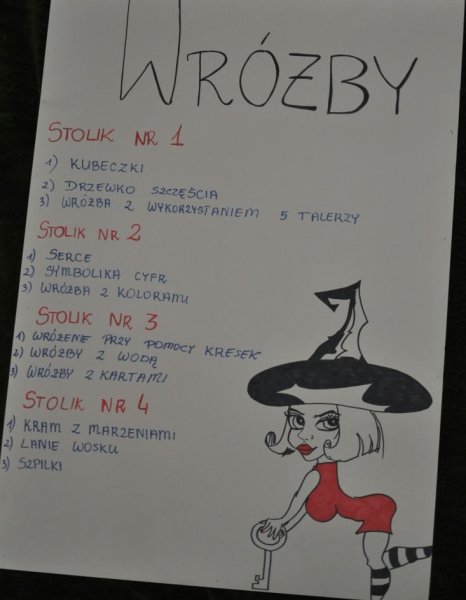 WRÓZBY
STOLIK NR 1
1) KUBECZKI
2) DRZEWKO SZCZĘŚCIA
3) WRÓŻBA Z WYKORZYSTANIEM 5 TALERZY
STOLIK NR 2
1) SERCE
2) SYMBOLIKA CYFR
3) WRÓŻBA Z KOLORAMI
STOLIK NR 3
1) WRÓŻENIE PRZY POMOCY KRESEK
2) WRÓŻBY Z WODĄ
3) WRÓŻBY Z KARTAMI
STOLIK NR 4
1) KRAM Z MARZENIAMI
2) LANIE WOSKU
3) SZPILKI